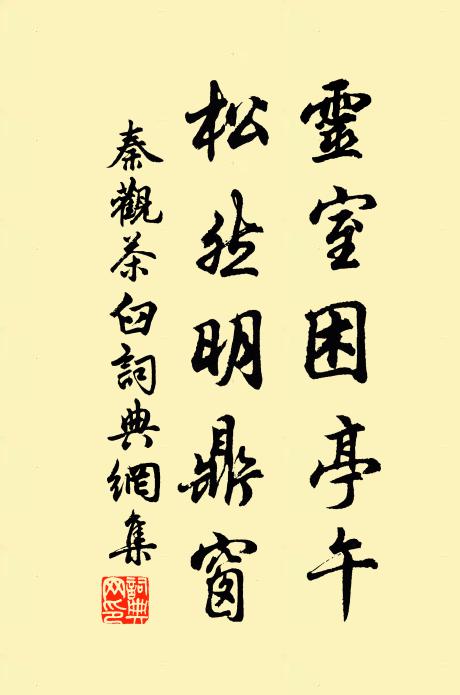 靈室困亭午
松然明鼎窗
秦觀茶臼詞典網集
詞典
网印